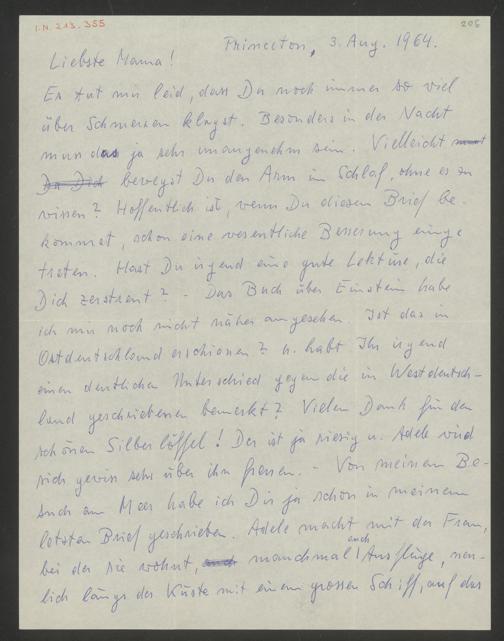 I.N. 213.355
206
Princeton, 3. Aug. 1964.
Liebste Mama!
Es tut mir leid, dass Du noch immer so viel
über Schmerzen klagst. Besonders in der Nacht
muss das ja sehr unangenehm sein. Vielleicht
bewegst Du den Arm im Schlaf, ohne es zu
wissen? Hoffentlich ist, wenn Du diesen Brief be-
kommst, schon eine wesentliche Besserung einge
treten. Hast Du irgend eine gute Lektüre, die
Dich zerstreut? - Das Buch über Einstein habe
ich mir noch nicht näher angesehen. Ist das in
Ostdeutschland erschienen? u. habt Ihr irgend
einen deutlichen Unterschied gegen die in Westdeutsch-
land geschriebenen bemerkt? Vielen Dank für den
schönen Silberlöffel! Der ist ja riesig u. Adele wird
sich gewiss sehr über ihn freuen. - Von meinem Be-
such am Meer habe ich Dir ja schon in meinem
letzten Brief geschrieben. Adele macht mit der Frau,
bei der sie wohnt, manchmal auch Ausflüge, neu-
lich längs der Küste mit einem grossen Schiff, auf das